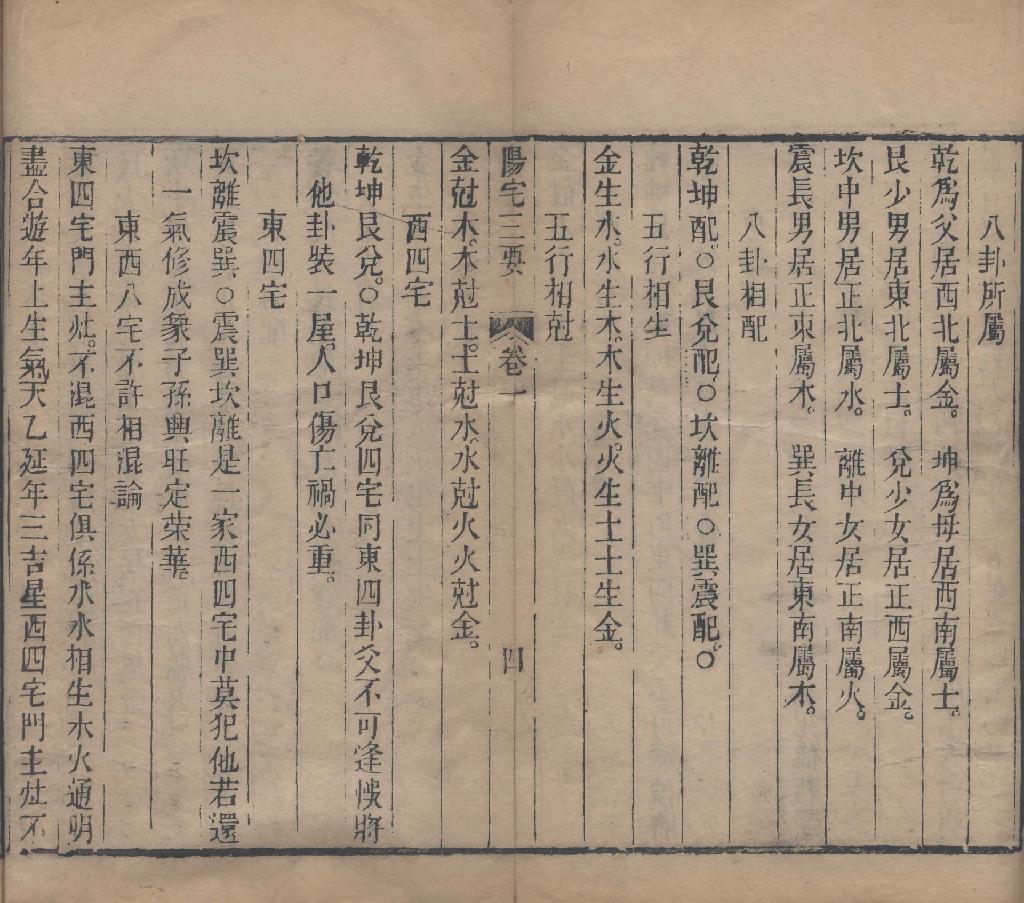 八卦所屬
乾爲父居西北屬金。　坤爲母居西南屬土。
艮少男居東北屬土。　兌少女居正西屬金。
坎中男居正北屬水。　離中女居正南屬火。
震長男居正東屬木。　巽長女居東南屬木。
八卦相配
乾坤配。○艮兌配。○坎離配○巽震配。○
五行相生
金生水。水生木。木生火。火生土土生金。
五行相尅
陽宅三要　卷一　四
金尅木。木尅土。土尅水。水尅火火尅金。
西四宅
乾坤艮兌。○乾坤艮兌四宅同東四卦爻不可逢悞將
他卦裝一屋。人口傷亡禍必重。
東四宅
坎離震巽。○震巽坎離是一家西四宅中莫犯他若還
一氣修成象子孫興旺定荣華。
東西八宅不許相混論
東四宅門主灶。不混西四宅俱係水木相生木火通明
盡合遊年上生氣天乙延年三吉星西四宅門主灶不